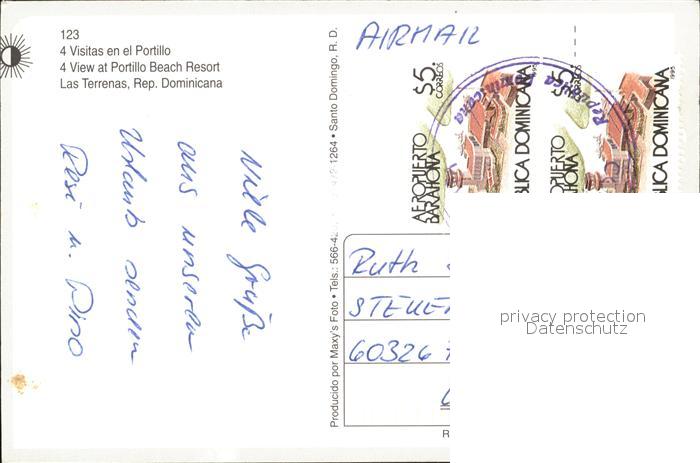 123
4 Visitas en el Portillo
4 View at Portillo Beach Resort
Las Terrenas, Rep. Dominicana
Viele Grüße
aus unserem
Urlaub senden
Rosi u. Dino
Producido por Maxy's Foto • Tels.: 566-42 1264 • Santo Domingo, R. D.
AIRMAIL
$5.
CORREOS
AEROPUERTO
BARAHONA
BLICA DOMINICANA
1995
$5.
CORREOS
OPUERTO
HONA
BLICA DOMINICANA
1995
Republica Dominicana
Ruth
STEUE
60326
R
privacy protection
Datenschutz